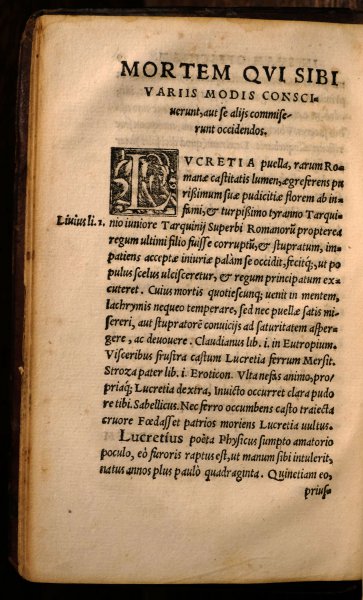 MORTEM QVI SIBI
VARIIS MODIS CONSCI-
uerunt, aut se alijs commise-
runt occidendos.
LVCRETIA puella, rarum Ro-
manæ castitatis lumen, ægreferens pu
rißimum suæ pudicitiæ florem ab in-
fami, & turpißimo tyranno Tarqui-
Liuius li. 1. nio iuniore Tarquinij Superbi Romanorū propterea
regum ultimi filio fuisse corruptū, & stupratum, im-
patiens acceptæ iniuriæ palàm se occidit, fecitq;, ut po
pulus scelus ulcisceretur, & regum principatum ex-
cuteret. Cuius mortis quotiescunq; uenit in mentem,
lachrymis nequeo temperare, sed nec puellæ satis mi-
sereri, aut stupratorē conuicijs ad saturitatem asper-
gere, ac deuouere. Claudianus lib. i. in Eutropium.
Visceribus frustra castum Lucretia ferrum Mersit.
Stroza pater lib. i. Eroticon. Vlta nefas animo, pro/
priaq; Lucretia dextra, Inuicto occurret clara pudo
re tibi. Sabellicus. Nec ferro occumbens casto traiecta
cruore Fœdasset patrios moriens Lucretia uultus.
Lucretius poëta Physicus sumpto amatorio
poculo, eò furoris raptus est, ut manum sibi intulerit,
natus annos plus paulò quadraginta. Quinetiam eo,
prius-